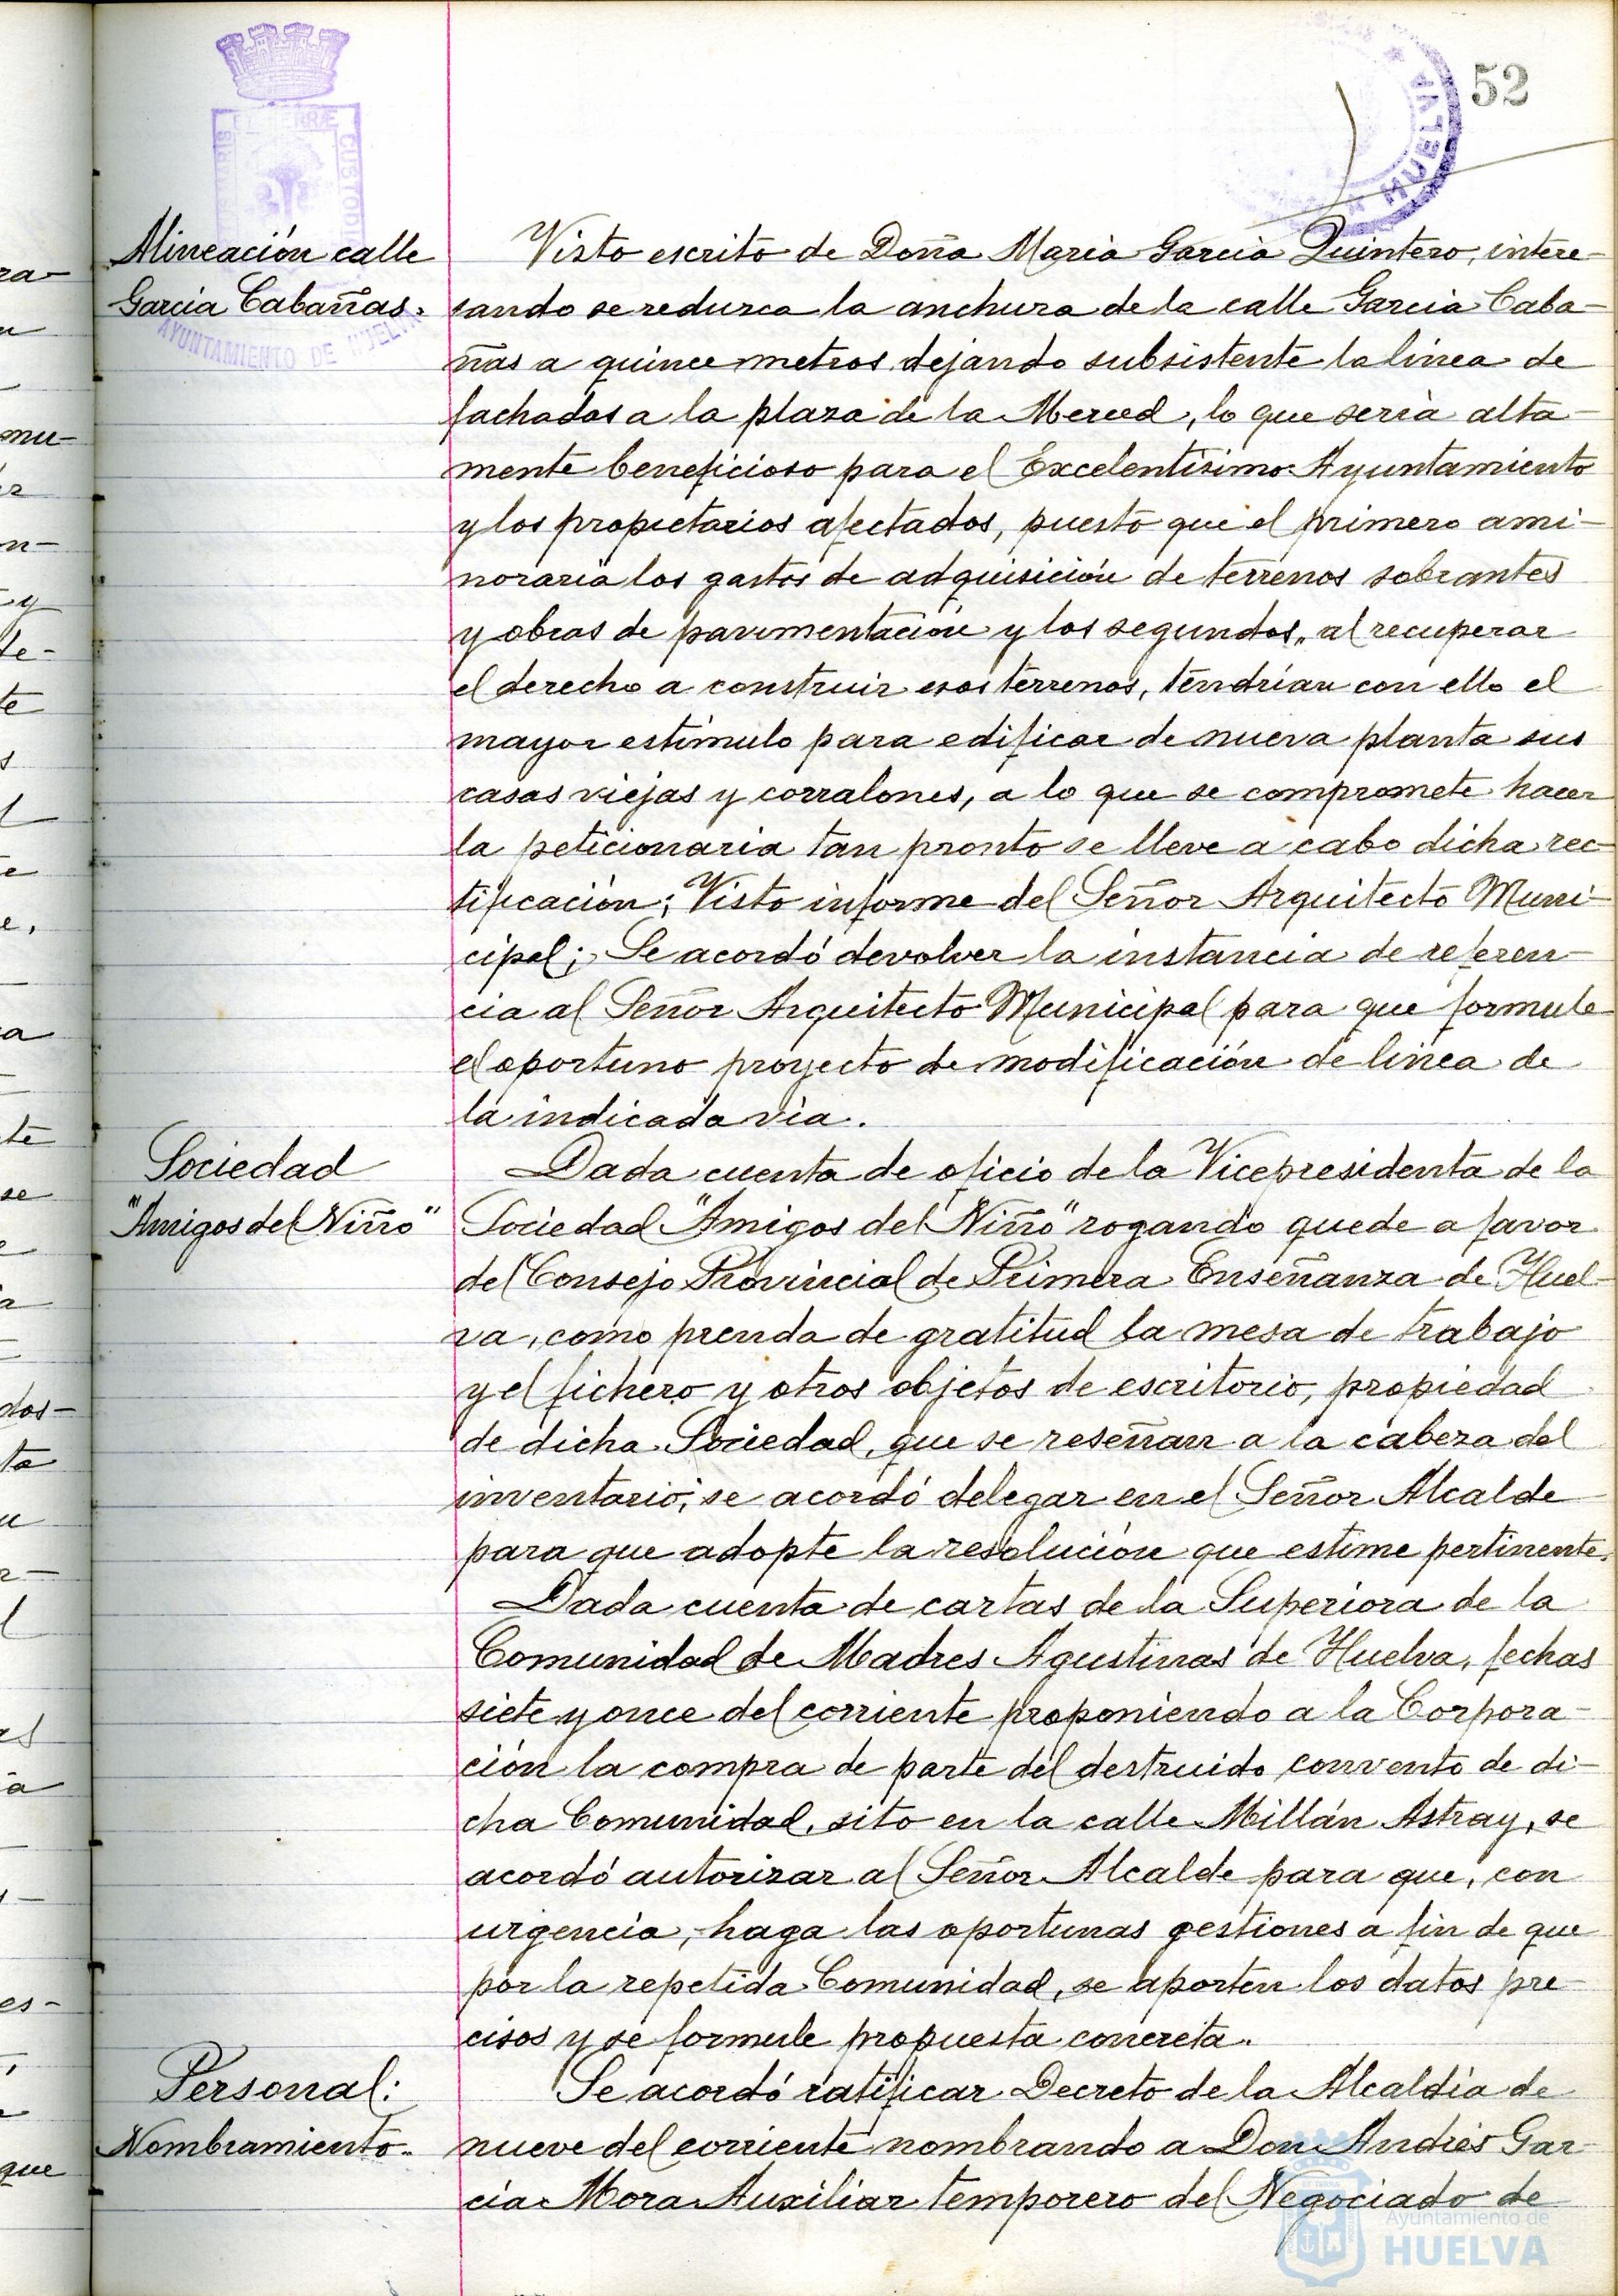 52
PORTUS MARIS ET TERRÆ CUSTODIA
AYUNTAMIENTO DE HUELVA
HUELVA
Alineación calle
Garcia Cabañas.
Visto escrito de Doña Maria Garcia Quintero, intere-
sando se reduzca la anchura de la calle Garcia Caba-
ñas a quince metros dejando subsistente la linea de
fachadas a la plaza de la Merced, lo que seria alta-
mente beneficioso para el Excelentisimo Ayuntamiento
y los propietarios afectados, puesto que el primero ami-
noraria los gastos de adquisición de terrenos sobrantes
y obras de pavimentación y los segundos, al recuperar
el derecho a construir esos terrenos, tendrian con ello el
mayor estimulo para edificar de nueva planta sus
casas viejas y corralones, a lo que se compromete hacer
la peticionaria tan pronto se lleve a cabo dicha rec-
tificación; Visto informe del Señor Arquitecto Muni-
cipal; Se acordó devolver la instancia de referen-
cia al Señor Arquitecto Municipal para que formule
el oportuno proyecto de modificación de linea de
la indicada via.
Sociedad
"Amigos del Niño"
Dada cuenta de oficio de la Vicepresidenta de la
Sociedad "Amigos del Niño" rogando quede a favor
del Consejo Provincial de Primera Enseñanza de Huel-
va, como prenda de gratitud la mesa de trabajo
y el fichero y otros objetos de escritorio, propiedad
de dicha Sociedad, que se reseñan a la cabeza del
inventario; se acordó delegar en el Señor Alcalde
para que adopte la resolución que estime pertinente.
Dada cuenta de cartas de la Superiora de la
Comunidad de Madres Agustinas de Huelva, fechas
siete y once del corriente proponiendo a la Corpora-
ción la compra de parte del destruido convento de di-
cha Comunidad, sito en la calle Millán Astray, se
acordó autorizar al Señor Alcalde para que, con
urgencia, haga las oportunas gestiones a fin de que
por la repetida Comunidad, se aporten los datos pre-
cisos y se formule propuesta concreta.
Personal:
Nombramiento.
Se acordó ratificar Decreto de la Alcaldia de
nueve del corriente nombrando a Don Andrés Gar-
cia Mora Auxiliar temporero del Negociado de
Ayuntamiento de
HUELVA